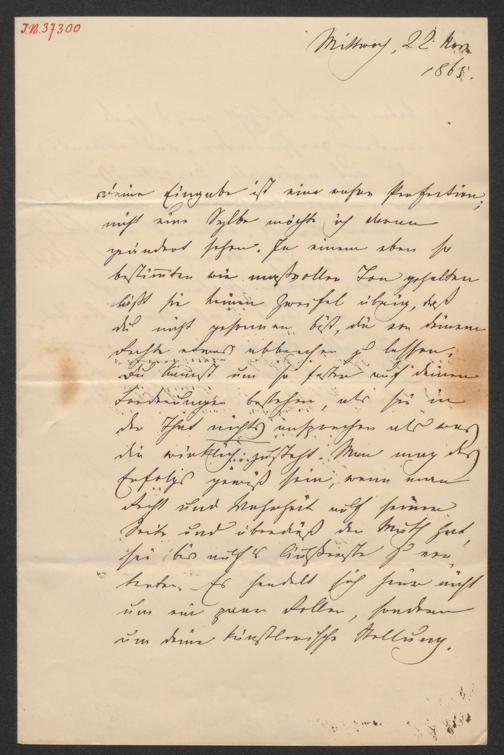 J.N. 37300
Mittwoch, 22. Nov.
1865.
Deine Eingabe ist eine wahre Perfection;
nicht eine Sylbe möchte ich daran
geändert sehen. In einem eben so
bestimmten wie maßvollen Ton gehalten
läßt sie keinen Zweifel übrig, daß
du nicht gesonnen bist, dir von deinem
Rechte etwas abbrechen zu lassen.
Du kannst um so fester auf deinen
Forderungen bestehen, als sie in
der That nichts ansprechen als was
dir wirklich zusteht. Man mag des
Erfolgs gewiß sein, wenn man
Recht und Wahrheit auf seiner
Seite und überdieß den Muth hat,
sie bis auf's Äußerste zu ver-
treten. Es handelt sich hier nicht
um ein paar Rollen, sondern
um deine künstlerische Stellung.